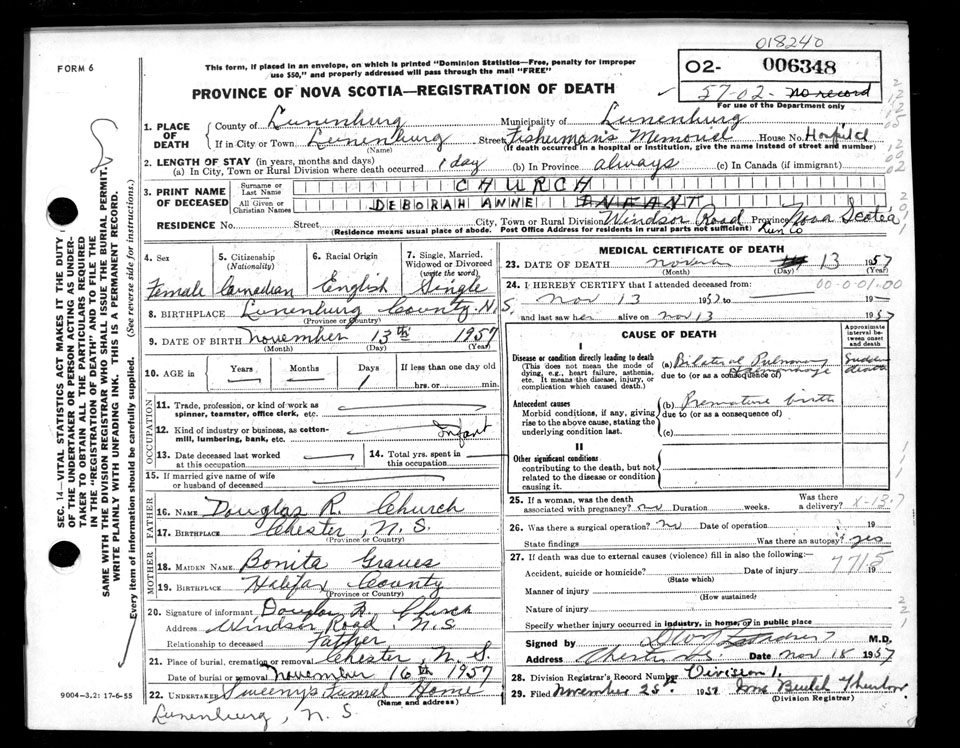 018240
FORM 6
This form, if placed in an envelope, on which is printed "Dominion Statistics—Free, penalty for improper use $50," and properly addressed will pass through the mail "FREE"
O2- 006348
57-02- no record
For use of the Department only
PROVINCE OF NOVA SCOTIA—REGISTRATION OF DEATH
1. PLACE OF DEATH
County of Lunenburg Municipality of Lunenburg
If in City or Town Lunenburg Street Fisherman's Memorial House No. Hospital
(Name) (If death occurred in a hospital or institution, give the name instead of street and number)
2. LENGTH OF STAY (in years, months and days)
(a) In City, Town or Rural Division where death occurred 1 day (b) In Province always (c) In Canada (if immigrant)
3. PRINT NAME OF DECEASED
Surname or Last Name CHURCH
All Given or Christian Names DEBORAH ANNE INFANT
RESIDENCE No. Street City, Town or Rural Division Windsor Road Province Nova Scotia
(Residence means usual place of abode. Post Office Address for residents in rural parts not sufficient) Lun Co
4. Sex Female
5. Citizenship (Nationality) Canadian
6. Racial Origin English
7. Single, Married, Widowed or Divorced (write the word) Single
8. BIRTHPLACE Lunenburg County N.S.
(Province or Country)
9. DATE OF BIRTH November 13th 1957
(Month) (Day) (Year)
10. AGE in Years Months Days 1 If less than one day old hrs. or min.
OCCUPATION
11. Trade, profession or kind of work as spinner, teamster, office clerk, etc.
12. Kind of industry or business, as cotton-mill, lumbering, bank, etc. Infant
13. Date deceased last worked at this occupation
14. Total yrs. spent in this occupation
15. If married give name of wife or husband of deceased
FATHER
16. NAME Douglas R. Church
17. BIRTHPLACE Chester, N.S.
(Province or Country)
MOTHER
18. MAIDEN NAME Bonita Graves
19. BIRTHPLACE Halifax County
(Province or Country)
20. Signature of informant Douglas R. Church
Address Windsor Road. N.S
Relationship to deceased Father
21. Place of burial, cremation or removal Chester, N.S.
Date of burial or removal November 16th 1957
22. UNDERTAKER Sweeny's Funeral Home
(Name and address)
Lunenburg, N.S
9004-3.21 17-6-55
MEDICAL CERTIFICATE OF DEATH
23. DATE OF DEATH November 13 1957
(Month) (Day) (Year)
24. I HEREBY CERTIFY that I attended deceased from: 00-0-01-00
Nov 13 1957 to 19
and last saw her alive on Nov 13 1957
CAUSE OF DEATH
Approximate interval between onset and death
I
Disease or condition directly leading to death (This does not mean the mode of dying, e.g., heart failure, asthenia, etc. It means the disease, injury, or complication which caused death.)
(a) Bilateral Pulmonary Hemorrhage Sudden death
due to (or as a consequence of)
Antecedent causes
Morbid conditions, if any, giving rise to the above cause, stating the underlying condition last.
(b) Premature birth
due to (or as a consequence of)
(c)
II
Other significant conditions contributing to the death, but not related to the disease or condition causing it.
25. If a woman, was the death associated with pregnancy? no Duration weeks. Was there a delivery? X-13:7
26. Was there a surgical operation? no Date of operation 19
State findings Was there an autopsy? yes
27. If death was due to external causes (violence) fill in also the following:— 7715
Accident, suicide or homicide? Date of injury 19
(State which)
Manner of injury
(How sustained)
Nature of injury
Specify whether injury occurred in industry, in home, or in public place
Signed by M.D.
Address Chester N.S. Date Nov 18 1957
28. Division Registrar's Record Number Division 1.
29. Filed November 25th 1957
(Division Registrar)
SEC. 14—VITAL STATISTICS ACT MAKES IT THE DUTY OF THE UNDERTAKER OR PERSON ACTING AS UNDERTAKER TO OBTAIN ALL THE PARTICULARS REQUIRED IN THE "REGISTRATION OF DEATH" AND TO FILE THE SAME WITH THE DIVISION REGISTRAR WHO SHALL ISSUE THE BURIAL PERMIT.
WRITE PLAINLY WITH UNFADING INK. THIS IS A PERMANENT RECORD.
Every item of information should be carefully supplied. (See reverse side for instructions.)